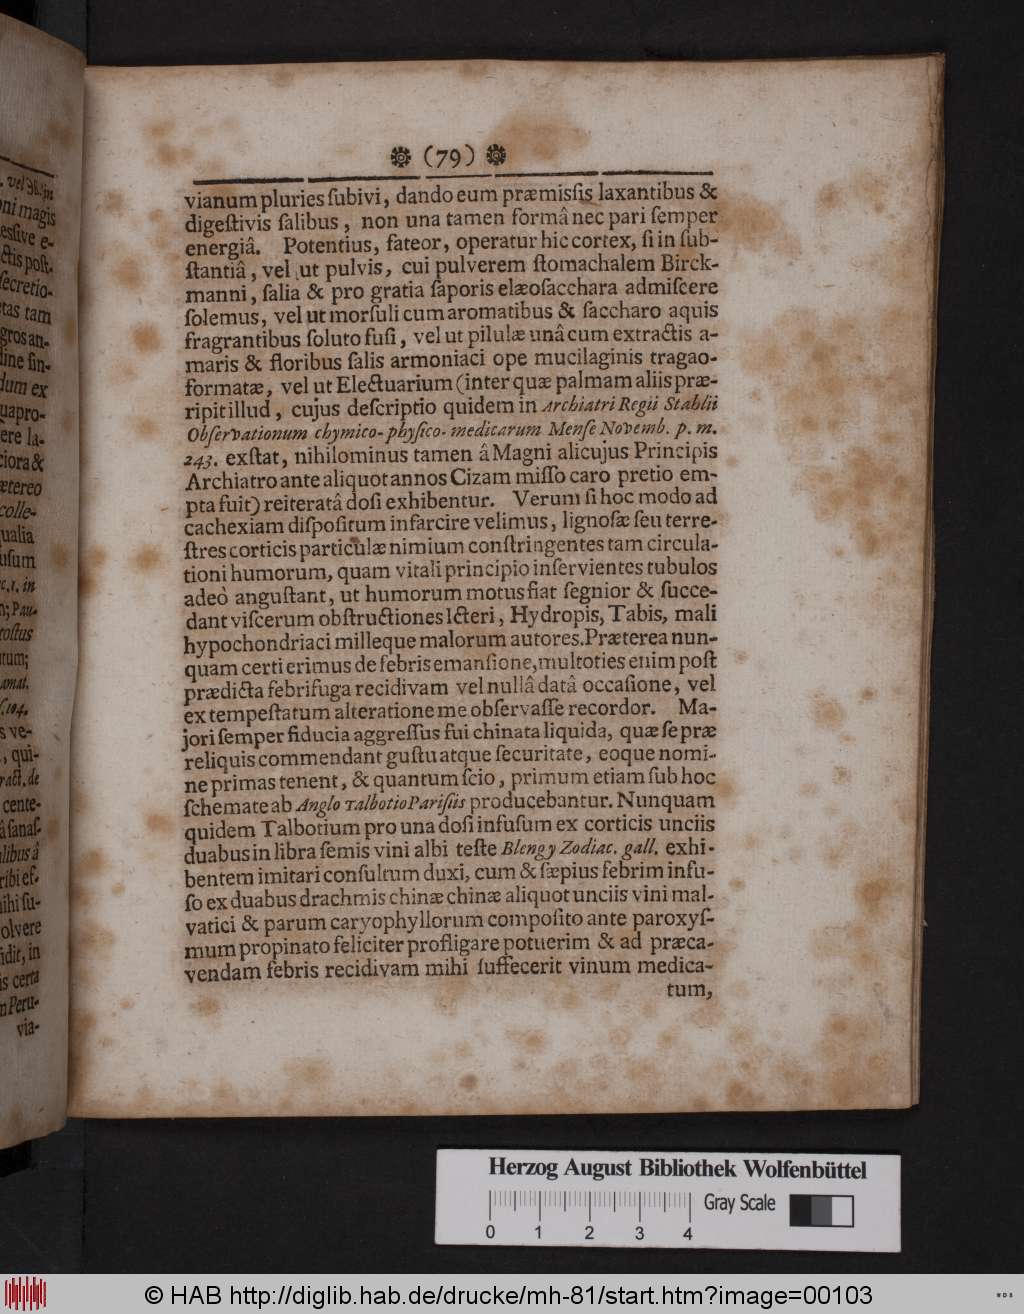 (79)
vianum pluries ſubivi, dando eum præmiſſis laxantibus &
digeſtivis ſalibus, non una tamen formâ nec pari ſemper
energiâ. Potentius, fateor, operatur hic cortex, ſi in ſub-
ſtantiâ, vel ut pulvis, cui pulverem ſtomachalem Birck-
manni, ſalia & pro gratia ſaporis elæoſacchara admiſcere
ſolemus, vel ut morſuli cum aromatibus & ſaccharo aquis
fragrantibus ſoluto fuſi, vel ut pilulæ unâ cum extractis a-
maris & floribus ſalis armoniaci ope mucilaginis tragao-
formatæ, vel ut Electuarium (inter quæ palmam aliis præ-
ripit illud, cujus deſcriptio quidem in Archiatri Regii Stahlii
Obſervationum chymico-phyſico-medicarum Menſe Novemb. p. m.
243. exſtat, nihilominus tamen â Magni alicujus Principis
Archiatro ante aliquot annos Cizam miſſo caro pretio em-
pta fuit) reiteratâ doſi exhibentur. Verum ſi hoc modo ad
cachexiam diſpoſitum infarcire velimus, lignoſæ ſeu terre-
ſtres corticis particulæ nimium conſtringentes tam circula-
tioni humorum, quam vitali principio inſervientes tubulos
adeò anguſtant, ut humorum motus fiat ſegnior & ſucce-
dant viſcerum obſtructiones Icteri, Hydropis, Tabis, mali
hypochondriaci milleque malorum autores. Præterea nun-
quam certi erimus de febris emanſione, multoties enim poſt
prædicta febrifuga recidivam vel nullâ datâ occaſione, vel
ex tempeſtatum alteratione me obſervaſſe recordor. Ma-
jori ſemper fiducia aggreſſus fui chinata liquida, quæ ſe præ
reliquis commendant guſtu atque ſecuritate, eoque nomi-
ne primas tenent, & quantum ſcio, primum etiam ſub hoc
ſchemate ab Anglo Talbotio Pariſiis producebantur. Nunquam
quidem Talbotium pro una doſi infuſum ex corticis unciis
duabus in libra ſemis vini albi teſte Blengy Zodiac. gall. exhi-
bentem imitari conſultum duxi, cum & ſæpius febrim infu-
ſo ex duabus drachmis chinæ chinæ aliquot unciis vini mal-
vatici & parum caryophyllorum compoſito ante paroxyſ-
mum propinato feliciter profligare potuerim & ad præca-
vendam febris recidivam mihi ſuffecerit vinum medica-
tum,
Herzog August Bibliothek Wolfenbüttel
Gray Scale
0 1 2 3 4
© HAB http://diglib.hab.de/drucke/mh-81/start.htm?image=00103